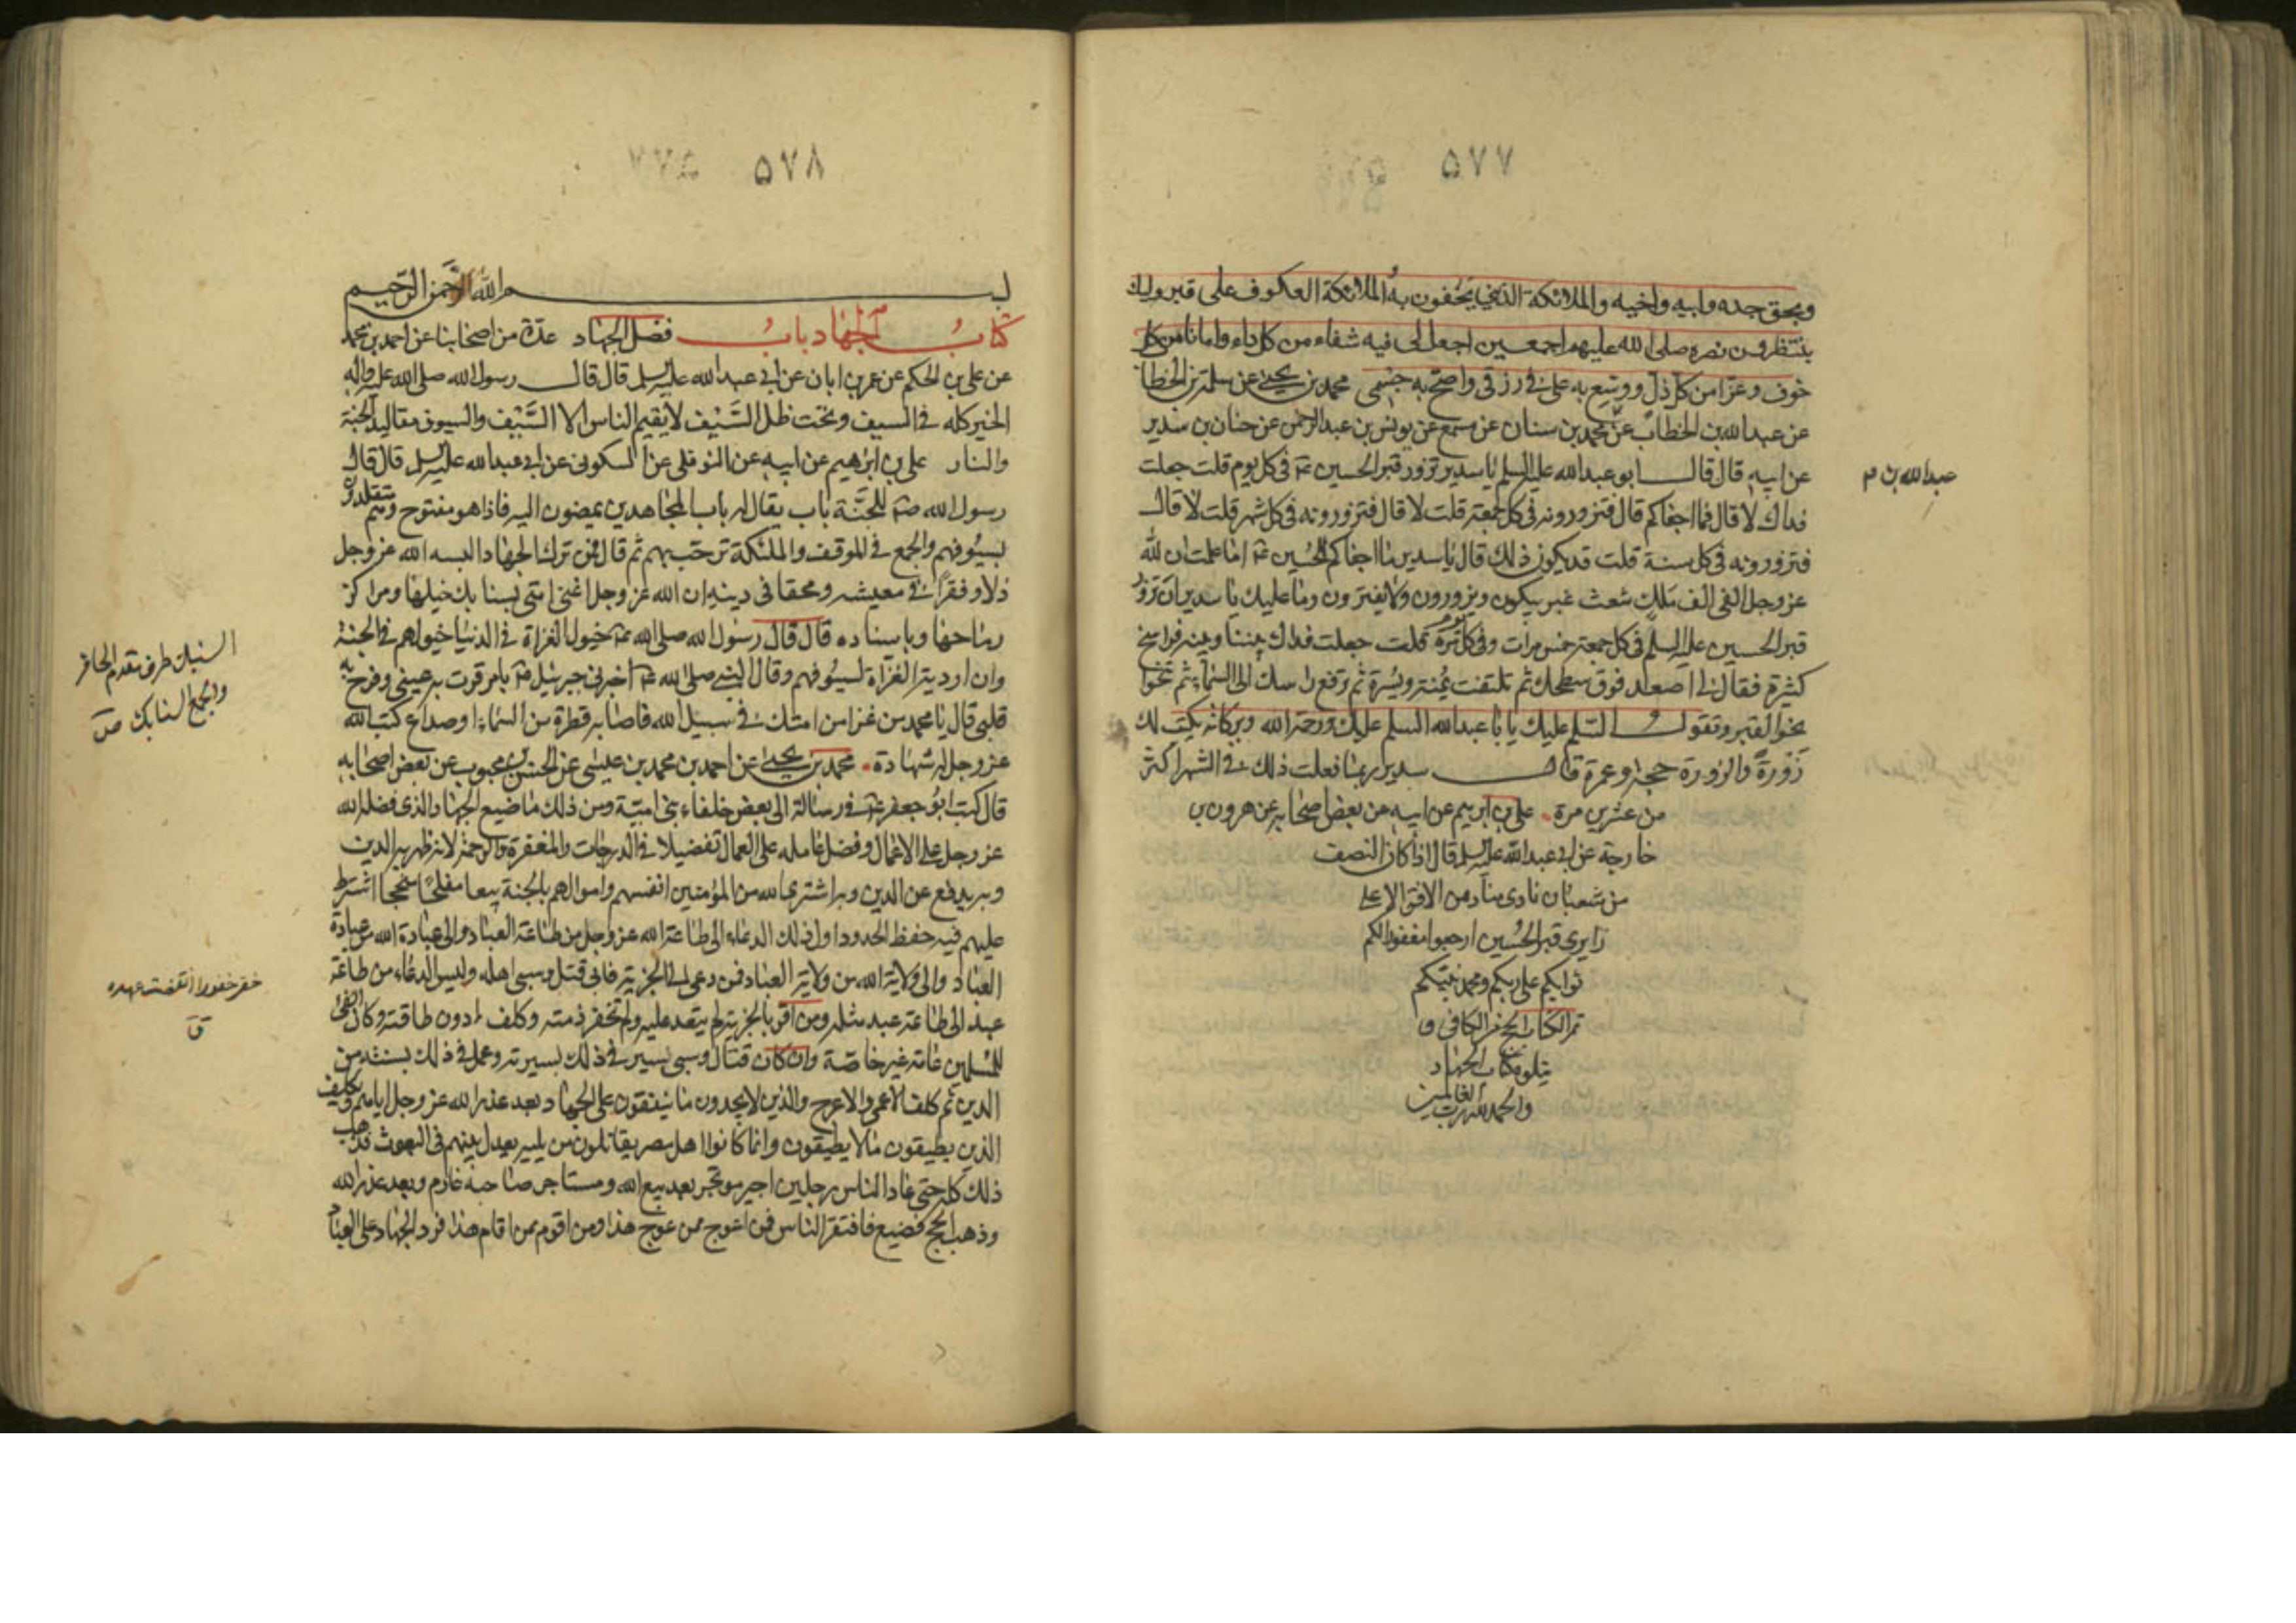 ٥٧٧
وبحق جده وابيه واخيه والملائكة الذين يحفون به والملائكة العكوف على قبر وليك
ينتظرون نصره صلى الله عليهم اجمعين اجعل لى فيه شفاء من كل داء وامانا من كل
خوف وعزا من كل ذل ووسع به على فى رزقى واصح به جسمى محمد بن يحيى عن سلمة بن الخطاب
عن عبدالله بن الخطاب عن محمد بن سنان عن مسمع عن يونس بن عبدالرحمن عن حنان بن سدير
عن ابيه قال قال ابو عبدالله عليه السلم يا سدير تزور قبر الحسين ع فى كل يوم قلت جعلت
عبدالله بن م
فداك لا قال فما اجفاكم قال فتزورونه فى كل جمعة قلت لا قال فتزورونه فى كل شهر قلت لا قال
فتزورونه فى كل سنة قلت قد يكون ذلك قال يا سدير ما اجفاكم للحسين ع اما علمت ان لله
عز وجل الفى الف ملك شعث غبر يبكون ويزورون ولا يفترون وما عليك يا سدير ان تزور
قبر الحسين عليه السلم فى كل جمعة خمس مرات وفى كل يوم مرة قلت جعلت فداك بيننا وبينه فراسخ
كثيرة فقال لى اصعد فوق سطحك ثم تلتفت يمنة ويسرة ثم ترفع راسك الى السماء ثم تنحوا
نحو القبر وتقول السلم عليك يا با عبدالله السلم عليك ورحمة الله وبركاته يكتب لك
زورة والزورة حجة وعمرة قال سدير ربما فعلت ذلك فى الشهر اكثر
من عشرين مرة علي بن ابرهيم عن ابيه عن بعض اصحابه عن هرون بن
خارجة عن ابى عبدالله عليه السلم قال اذا كان النصف
من شعبان نادى مناد من الافق الاعلى
زايرى قبر الحسين ارجعوا مغفورا لكم
ثوابكم على ربكم ومحمد نبيكم
تم كتاب الحج من الكافى و
يتلوه كتاب الجهاد
والحمد لله رب العالمين
٥٧٨
بسم الله الرحمن الرحيم
كتاب الجهاد باب فضل الجهاد عدة من اصحابنا عن احمد بن محمد
عن علي بن الحكم عن عمر بن ابان عن ابى عبدالله عليه السلم قال قال رسول الله صلى الله عليه واله
الخير كله فى السيف وتحت ظل السيف لا يقيم الناس الا السيف والسيوف مقاليد الجنة
والنار علي بن ابرهيم عن ابيه عن النوفلى عن السكونى عن ابى عبدالله عليه السلم قال قال
رسول الله ص للجنة باب يقال له باب المجاهدين يمضون اليه فاذا هو مفتوح وهم متقلدون
بسيوفهم والجمع فى الموقف والملئكة ترحب بهم ثم قال فمن ترك الجهاد البسه الله عز وجل
ذلا وفقرا فى معيشته ومحقا فى دينه ان الله عز وجل اغنى امتى بسنابك خيلها ومراكز
رماحها وباسناده قال قال رسول الله صلى الله ع خيول الغزاة فى الدنيا خيولهم فى الجنة
وان اردية الغزاة لسيوفهم وقال النبى صلى الله ع اخبرنى جبرئيل ع بامر قرت به عينى وفرح به
قلبى قال يا محمد من غزا من امتك فى سبيل الله فاصابه قطرة من السماء او صداع كتب الله
عز وجل له شهادة محمد بن يحيى عن احمد بن محمد بن عيسى عن الحسن بن محبوب عن بعض اصحابه
قال كتب ابو جعفر ع فى رسالة الى بعض خلفاء بنى امية ومن ذلك ما ضيع الجهاد الذى فضله الله
عز وجل على الاعمال وفضل عامله على العمال تفضيلا فى الدرجات والمغفرة والرحمة لانه ظهر به الدين
وبه يدفع عن الدين وبه اشترى الله من المؤمنين انفسهم واموالهم بالجنة بيعا مفلحا منجحا اشترط
عليهم فيه حفظ الحدود واول ذلك الدعاء الى طاعة الله عز وجل من طاعة العباد والى عبادة الله من عبادة
العباد والى ولاية الله من ولاية العباد فمن دعى الى الجزية فابى قتل وسبى اهله وليس الدعاء من طاعة
عبد الى طاعة عبد مثله ومن اقر بالجزية لم يتعد عليه ولم تخفر ذمته وكلف دون طاقته وكان الفئ
للمسلمين عامة غير خاصة وان كان قتال وسبى سير فى ذلك بسيرته وعمل فى ذلك بسنته من
الدين ثم كلف الاعمى والاعرج والذين لا يجدون ما ينفقون على الجهاد بعد عذر الله عز وجل اياهم ويكلف
الذين يطيقون ما لا يطيقون وانما كانوا اهل مصر يقاتلون من يليه يعدل بينهم فى البعوث فذهب
ذلك كله حتى عاد الناس رجلين اجير مؤتجر بعد بيع الله ومستاجر صاحبه غارم وبعد عذر الله
وذهب الحج فضيع فافتقر الناس فمن اعوج ممن عوج هذا ومن اقوم ممن اقام هذا فرد الجهاد على العباد
السنبك طرف مقدم الحافر
والجمع السنابك ص
خفر خفورا انقضت عهده
ق